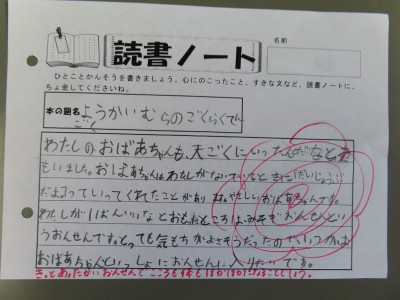 読書ノート
名前
ひとことかんそうを書きましょう。心にのこったこと、すきな文など、読書ノートに、
ちょ金してくださいね。
本の題名
ようかいむらのごくらくてん
ごく
わたしの、おばあちゃんも、天ごくにいったんだなとお
もいました。おばあちゃんはわたしがないていたときに「だいじょうぶ
だよ」っていってくれたことがあります。やさしいおばあちゃんです。
わたしが1ばんいいなとおもったところは、みそぎおんせんとい
うおんせんです。とっても気もちがよさそうだったのでいつかお
おばあちゃんといっしょにおんせんに入りたいです。
きっとあったかいおんせんでこころも体もほかほかになることでしょう。